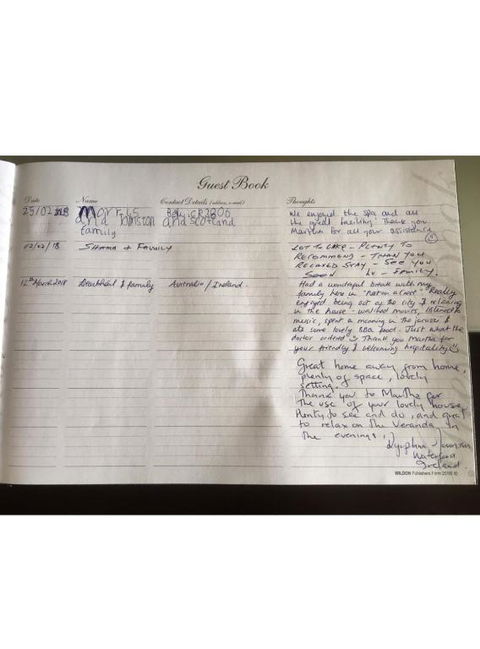 Guest Book
Date Name Contact Details (address, e-mail) Thoughts
25/02 Morris
and Johnston
family
and Scotland
We enjoyed the spa and all
the great facilities. Thank you
Martha for all your assistance
02/03/18 Shanna + Family
LOT TO LIKE - PLENTY TO
RECOMMEND - THANK YOU
RELAXED STAY - SEE YOU
SOON FAMILY.
12th March 2018 & family Australia / Ireland.
Had a wonderful break with my
family here in Really
enjoyed being out of the city & relaxing
in the house - watched movies, listened to
music, spent a morning in the jacuzzi &
ate some lovely BBQ food. Just what the
doctor ordered Thank you Martha for
your friendly & welcoming hospitality
Great home away from home,
plenty of space, lovely
setting.
Thank you to Martha for
the use of your lovely house,
Plenty to see and do, and great
to relax on the Veranda in
the evenings.
Waterford
Ireland
WILDON Publishers Form